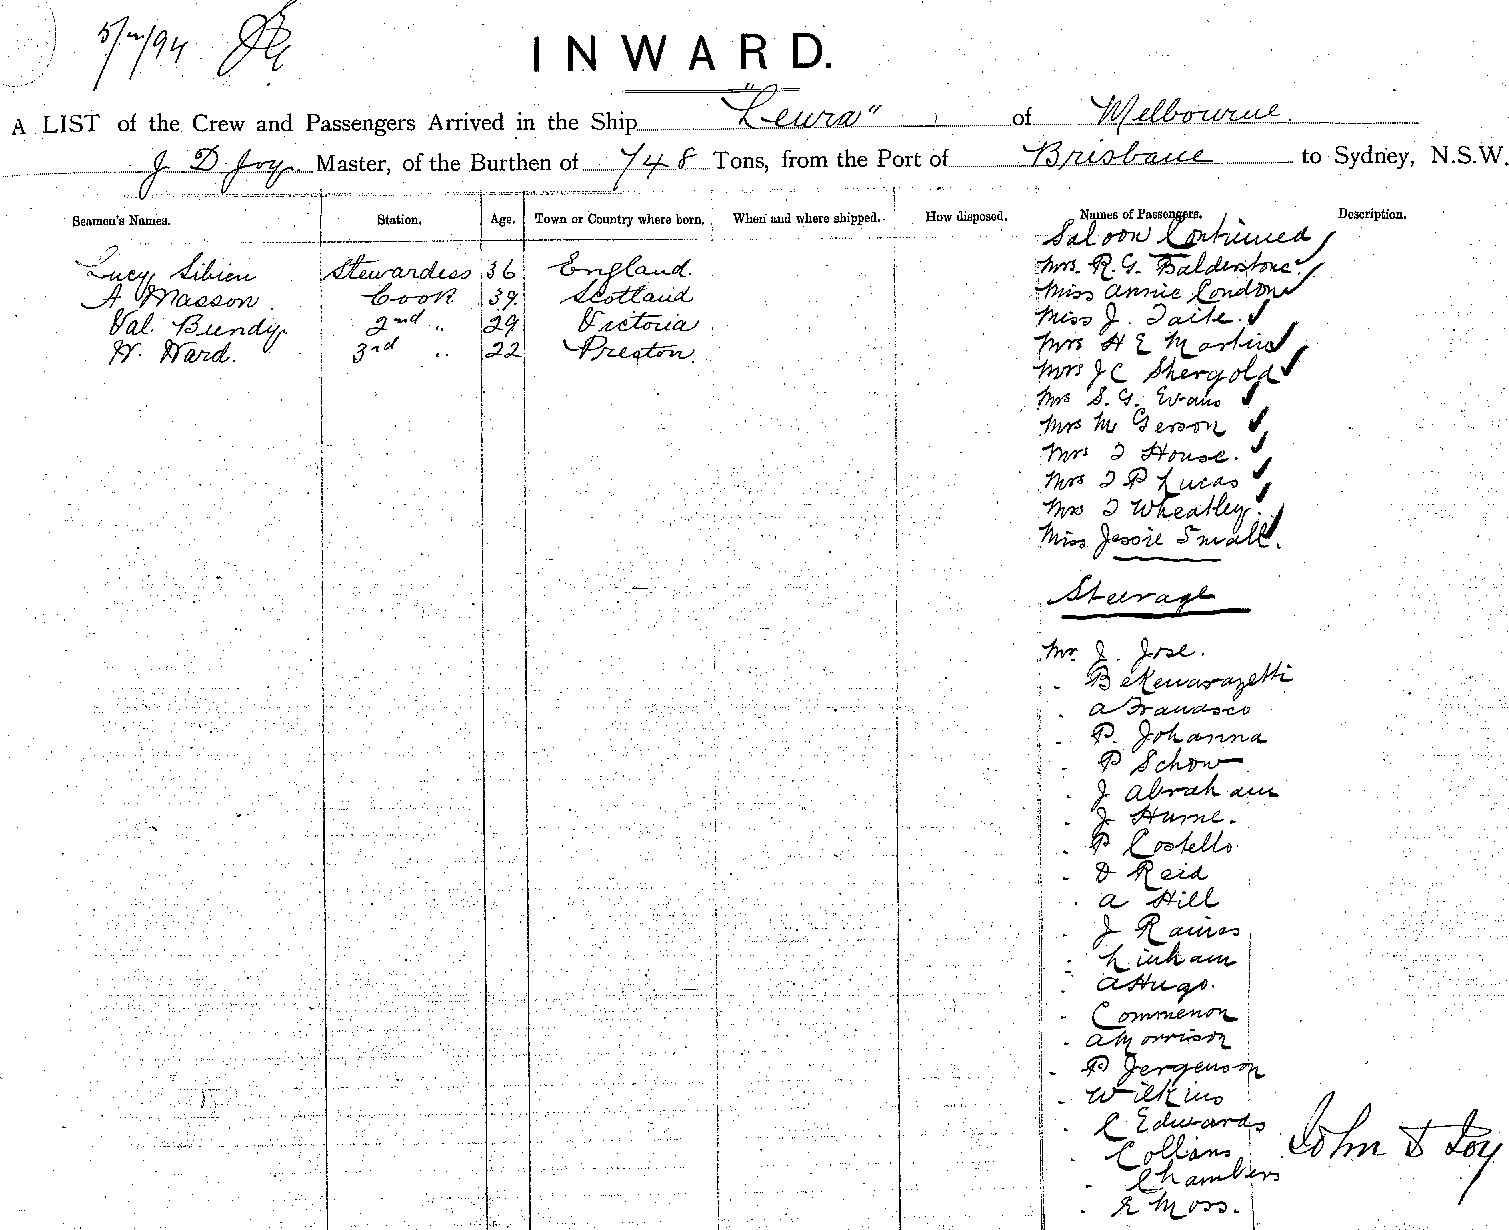 5/ /94
INWARD.
A LIST of the Crew and Passengers Arrived in the Ship "Leura" of Melbourne
J D Joy. Master, of the Burthen of 748 Tons, from the Port of Brisbane to Sydney, N.S.W.
Seamen's Names. Station. Age. Town or Country where born. When and where shipped. How disposed. Names of Passengers. Description.
Saloon Continued
Lucy Sibien Stewardess 36 England. Mrs. R. G. Balderstone
A. Masson Cook 39 Scotland Miss Annie Condon
Val. Bundy 2nd " 29 Victoria Miss J. Taite.
W. Ward. 3rd " 22 Preston. Mrs H E Martin
Mrs J C Shergold
Mrs S. G. Evans
Mrs M Gerson
Mrs J House.
Mrs J P Lucas
Mrs J Wheatley.
Miss Jessie Small.
Steerage
Mr. J. Jose.
B
A Francisco
P. Johanna
P Schow
J Abraham
J Hume.
P Costello
D Reid
A Hill
J Raines
Linham
A Hugo.
Commenon
A Morrison
P Jergenson
Wilkins
C Edwards
Collins
Chambers
E Moss.
John D Joy